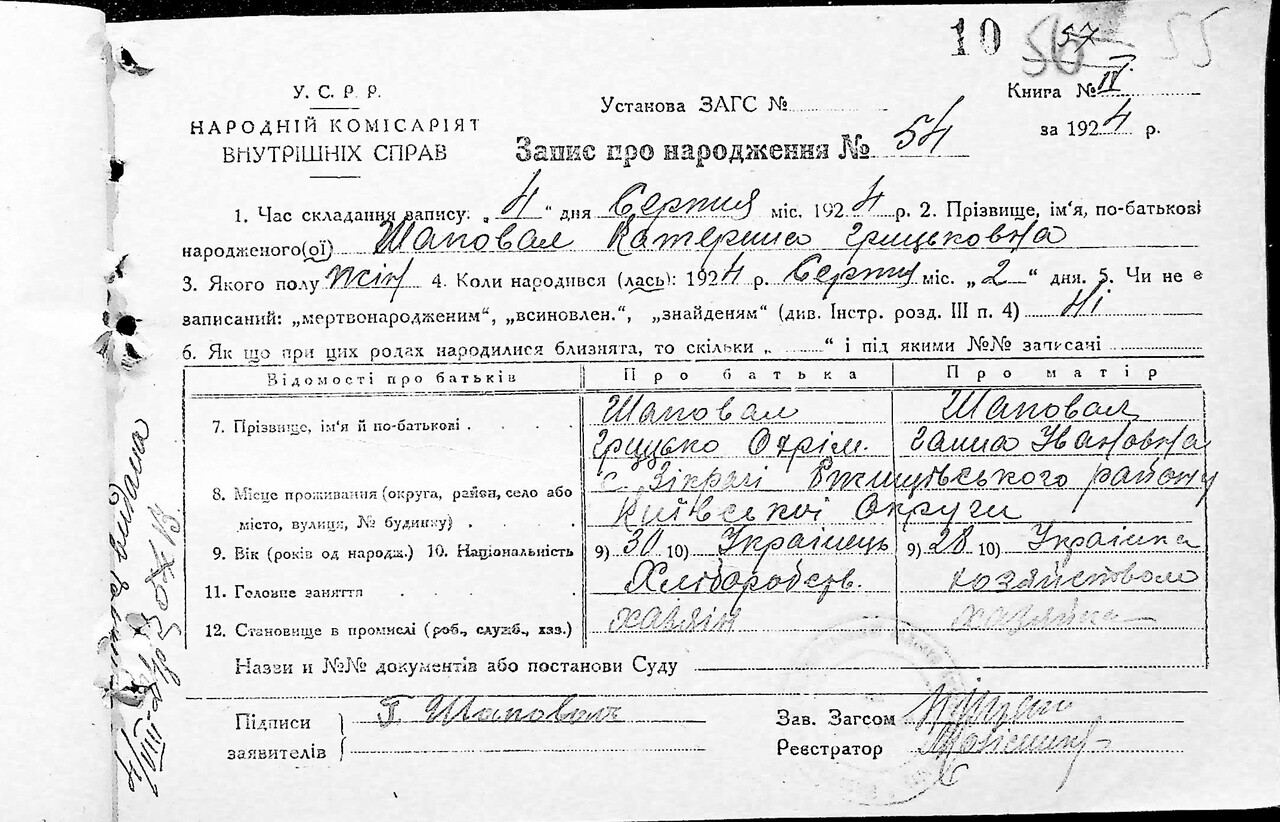 10 56 57 55
У. С. Р. Р.
НАРОДНІЙ КОМІСАРІЯТ
ВНУТРІШНІХ СПРАВ
Установа ЗАГС №
Книга № IV
за 1924 р.
Запис про народження № 54
1. Час складання запису: „ 4 “ дня Серпня міс. 1924 р. 2. Прізвище, ім'я, по-батькові
народженого(ої) Шаповал Катерина Грицьковна
3. Якого полу жін 4. Коли народився (лась): 1924 р. Серпня міс. „ 2 “ дня. 5. Чи не є
записаний: „мертвонародженим“, „всиновлен.“, „знайденям“ (див. Інстр. розд. III п. 4) Ні
6. Як що при цих родах народилися близнята, то скільки „ “ і під якими №№ записані
Відомості про батьків Про батька Про матір
7. Прізвище, ім'я й по-батькові Шаповал Шаповал
Грицько Охрім. Ганна Івановна
8. Місце проживання (округа, район, село або с. Зікрачі Ржищівського району
місто, вулиця, № будинку) Київської Округи
9. Вік (років од народж.) 10. Національність 9) 30 10) Українець 9) 28 10) Українка
11. Головне заняття Хліборобств. хозяйством
12. Становище в промислі (роб., служб., хаз.) хазяін хазяйка
Назви и №№ документів або постанови Суду
Підписи Г. Шаповал Зав. Загсом
заявителів Реєстратор